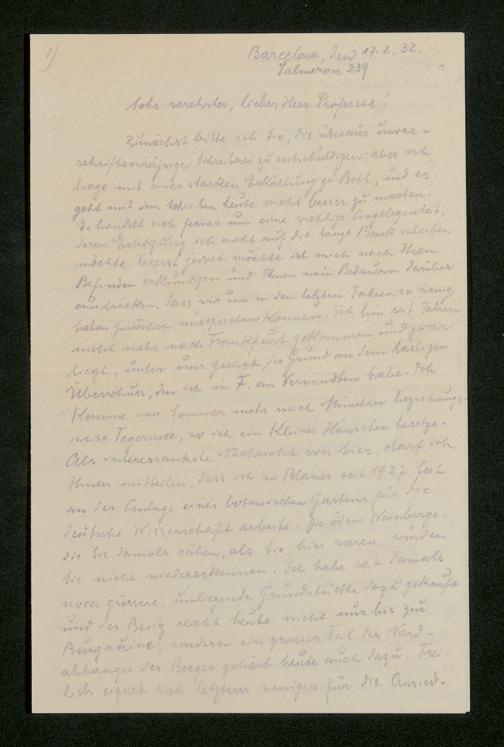 1)
Barcelona, den 17.2.32.
Salmeron 239
Sehr verehrter, lieber Herr Professor!
Zunächst bitte ich Sie, die überaus unvor-
schriftsmässige Schreiberei zu entschuldigen; aber ich
liege mit einer starken Erkältung zu Bett, und es
geht mit dem Schreiben heute nicht besser zu machen.
Es handelt sich ferner um eine wichtige Angelegenheit,
deren Erledigung ich nicht auf die lange Bank schieben
möchte. Zuerst jedoch möchte ich mich nach Ihrem
Befinden erkundigen und Ihnen mein Bedauern darüber
ausdrücken, dass wir uns in den letzten Jahren so wenig
haben persönlich aussprechen können. Ich bin seit Jahren
nicht mehr nach Frankfurt gekommen und zwar
liegt, unter uns gesagt, der Grund an dem lästigen
Überschuss, den ich in F. an Verwandten habe. Ich
komme im Sommer mehr nach München beziehungs-
weise Tegernsee, wo ich ein kleines Häuschen besitze.
Als interessanteste Nachricht von hier, darf ich
Ihnen mitteilen, dass ich in Blanes seit 1927 fest
an der Anlage eines botanischen Gartens für die
deutsche Wissenschaft arbeite. Die öden Weinberge,
die Sie damals sahen, als Sie hier waren, würden
Sie nicht wiedererkennen. Ich habe seit damals
noch grössere, umliegende Grundstücke dazu gekauft
und der Besitz reicht heute nicht nur bis zur
Burgruine, sondern ein grosser Teil des Nord-
abhanges des Berges gehört heute auch dazu. Frei-
lich eignet sich letzterer weniger für die Ansied-